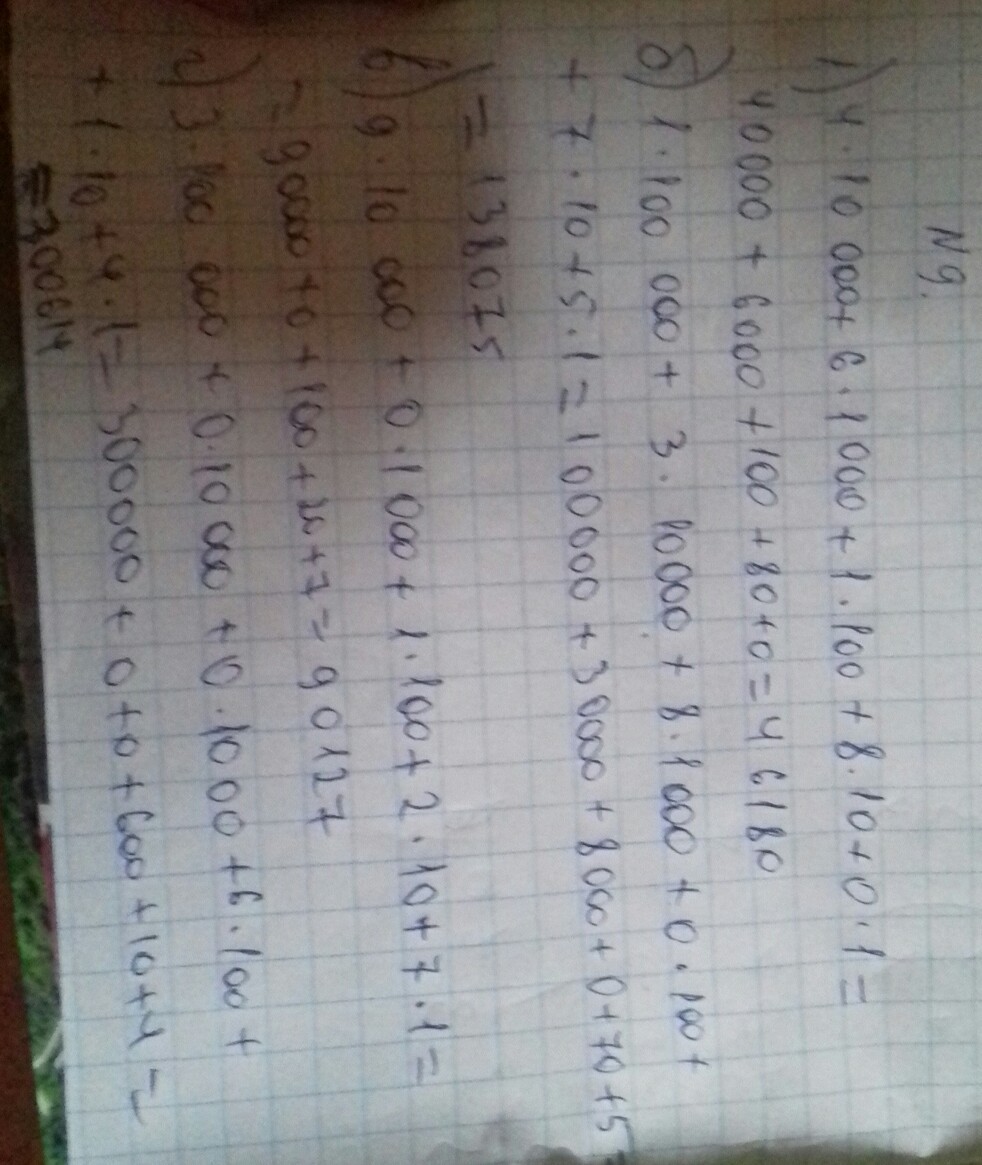 N 9.
1) 4·10 000 + 6·1000 + 1·100 + 8·10 + 0·1 =
40000 + 6000 + 100 + 80 + 0 = 46180
б) 1·100 000 + 3·10000 + 8·1000 + 0·100 +
+ 7·10 + 5·1 = 100000 + 30000 + 8000 + 0 + 70 + 5
= 138075
в) 9·10 000 + 0·1000 + 1·100 + 2·10 + 7·1 =
= 90000 + 0 + 100 + 20 + 7 = 90127
г) 3·100 000 + 0·10 000 + 0·1000 + 6·100 +
+ 1·10 + 4·1 = 300000 + 0 + 0 + 600 + 10 + 4 =
= 300614